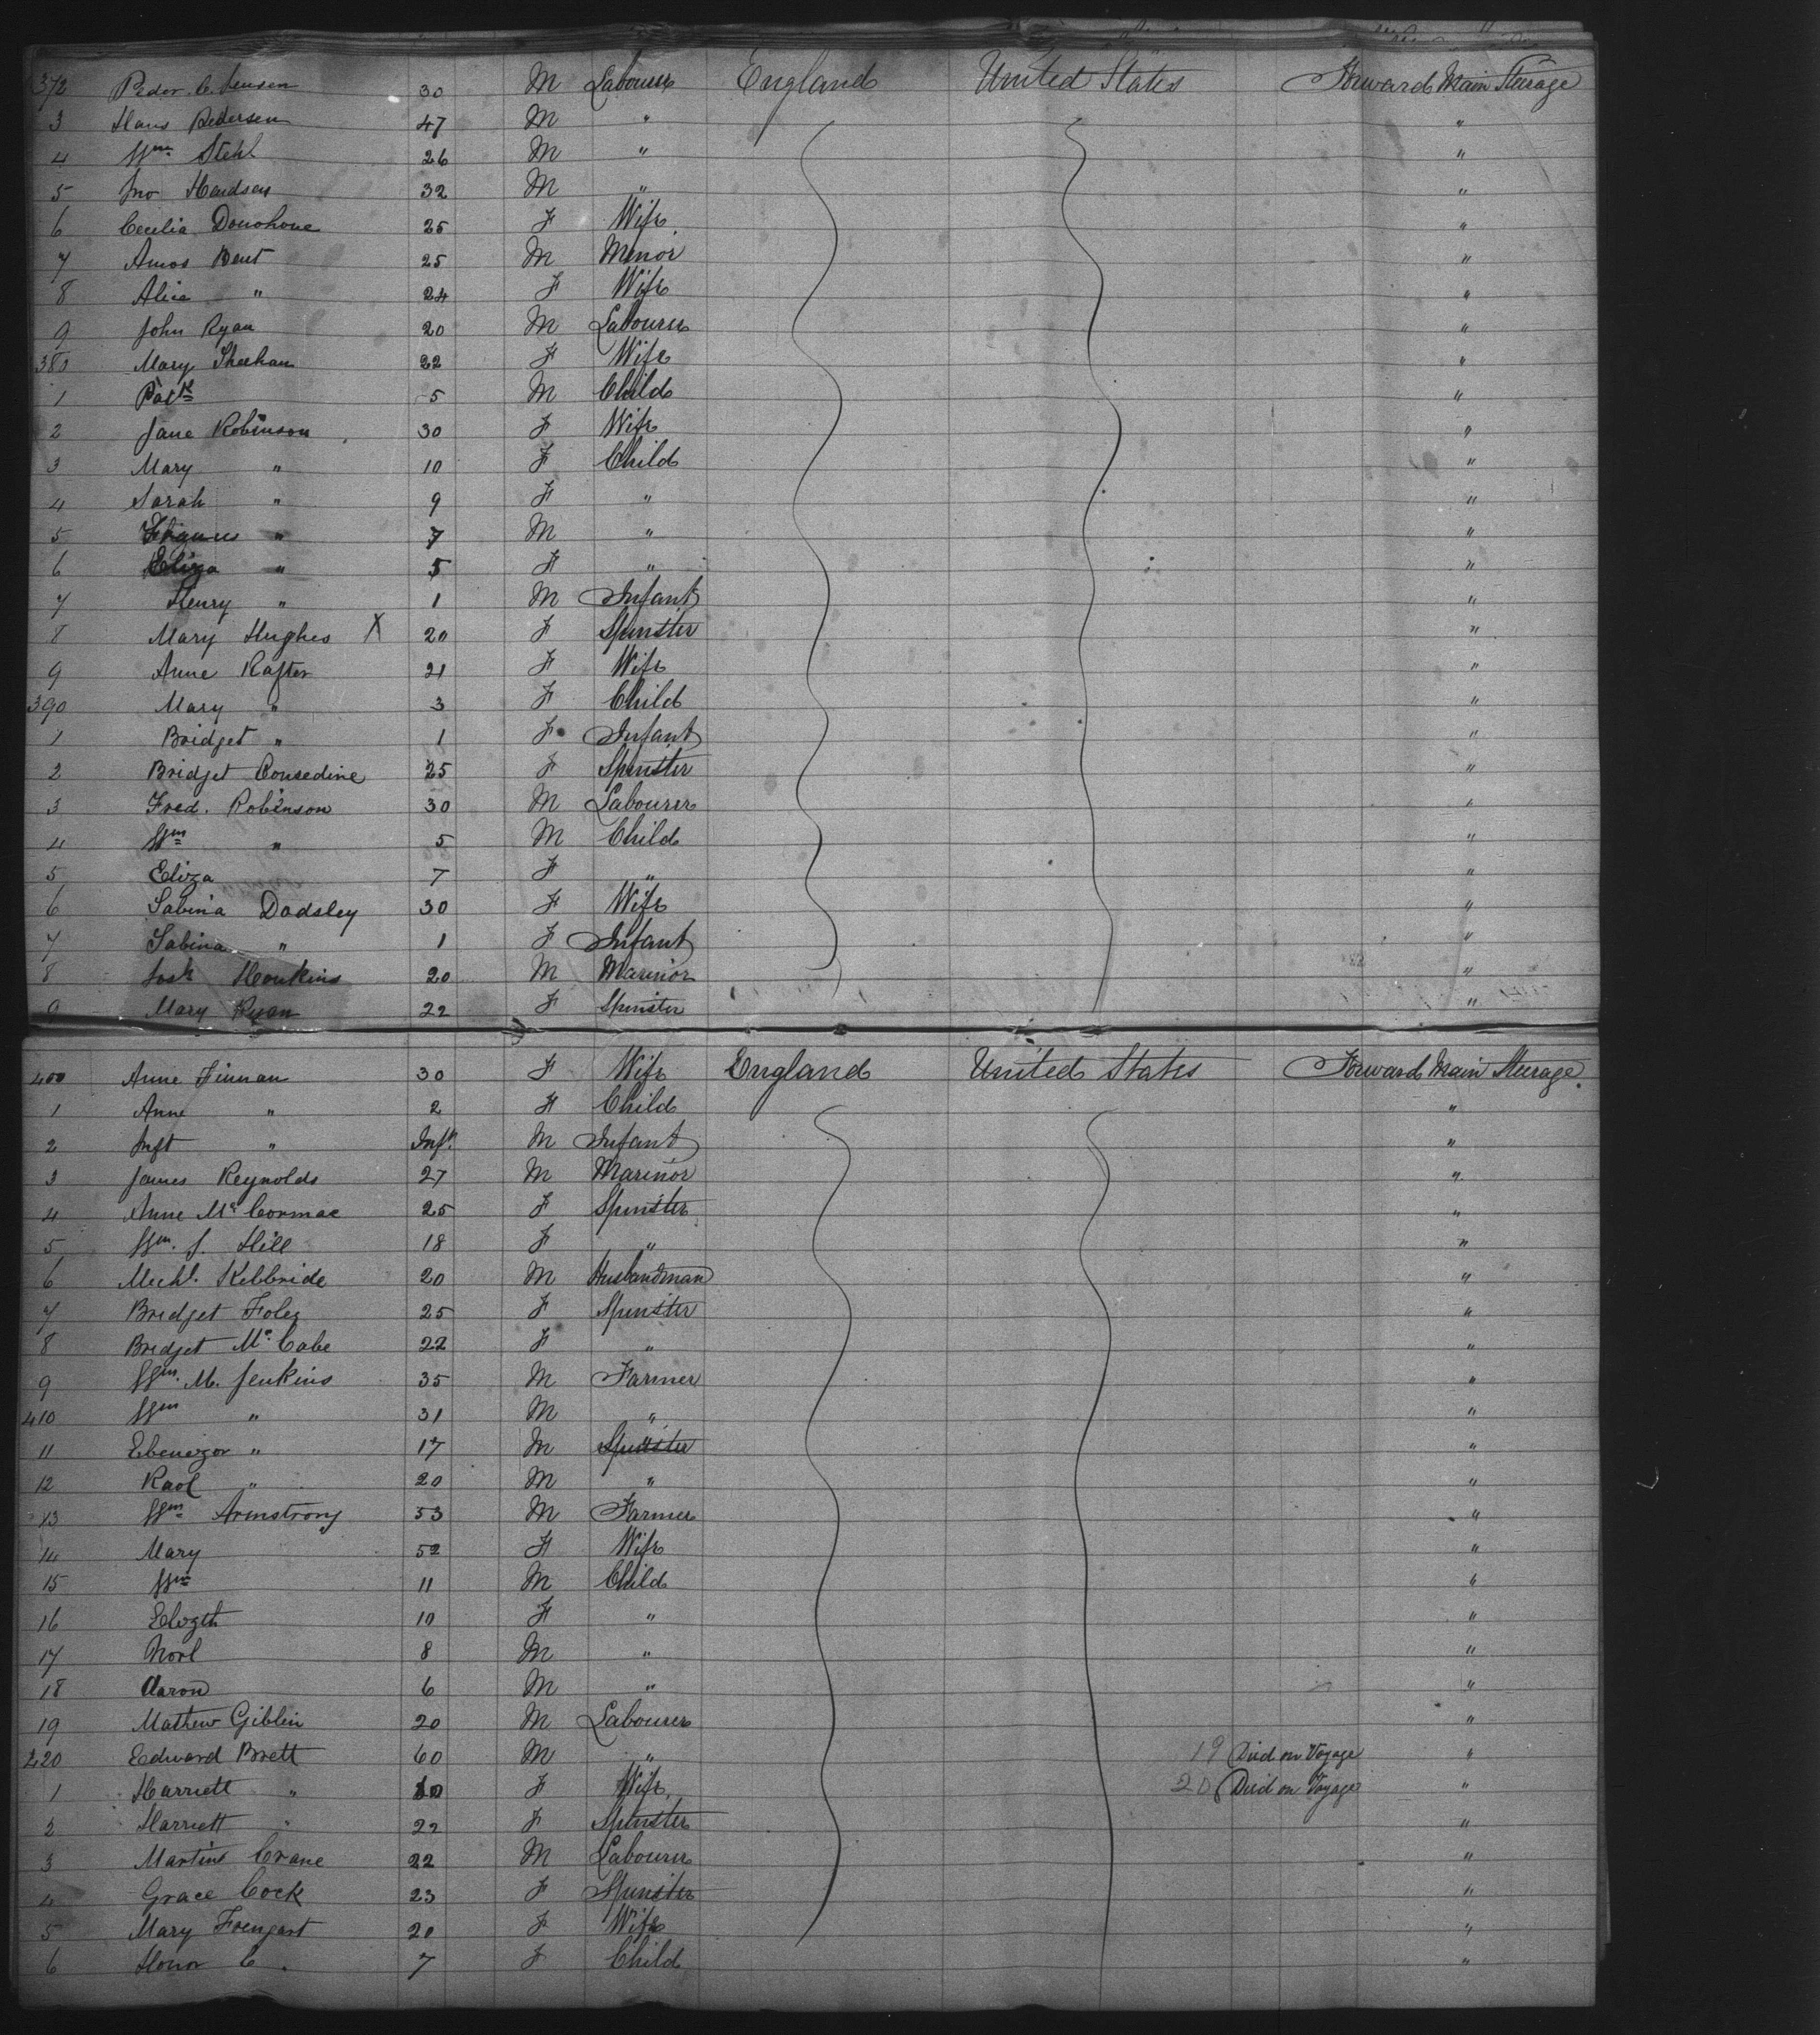 372 Peder. C. Jensen 30 M Labourer England United States Forward Main Steerage
3 Hans Pedersen 47 M " "
4 Wm. Stehl 26 M " "
5 Jno Hendsen 32 M " "
6 Cecilia Donohoue 25 F Wife "
7 Amos Bent 25 M Menor "
8 Alice " 24 F Wife "
9 John Ryan 20 M Labourer "
380 Mary Sheehan 22 F Wife "
1 Patk 5 M Child "
2 Jane Robinson 30 F Wife "
3 Mary " 10 F Child "
4 Sarah " 9 F " "
5 " 7 M " "
6 Eliza " 5 F " "
7 Henry " 1 M Infant "
8 Mary Hughes X 20 F Spinster "
9 Anne Rafter 21 F Wife "
390 Mary " 3 F Child "
1 Bridget " 1 F Infant "
2 Bridget Consedine 25 F Spinster "
3 Fred. Robinson 30 M Labourer "
4 Wm " 5 M Child "
5 Eliza 7 F " "
6 Sabina Dadsley 30 F Wife "
7 Sabina " 1 F Infant "
8 Josh 20 M Marinor "
9 Mary Ryan 22 F Spinster "
400 Anne Finnan 30 F Wife England United States Forward Main Steerage
1 Anne " 2 F Child "
2 Inft " Inft. M Infant "
3 James Reynolds 27 M Marinor "
4 Anne Mc Cormac 25 F Spinster "
5 Wm. J. Hill 18 F " "
6 Michl. Kebbride 20 M Husbandman "
7 Bridget Foley 25 F Spinster "
8 Bridget Mc Cabe 22 F " "
9 Wm. M. Jenkins 35 M Farmer "
410 Wm " 31 M " "
11 Ebenezor " 17 M Spinster "
12 " 20 M " "
13 Wm Armstrong 53 M Farmer "
14 Mary 52 F Wife "
15 Wm 11 M Child "
16 Elizth 10 F " "
17 8 M " "
18 Aaron 6 M " "
19 Mathew Giblin 20 M Labourer "
420 Edward Brett 60 M " 19 Died on Voyage "
1 Harriett " F Wife 20 Died on Voyage "
2 Harriett " 22 F Spinster "
3 Martin Crane 22 M Labourer "
4 Grace Cock 23 F Spinster "
5 Mary 20 F Wife "
6 Honor C. 7 F Child "